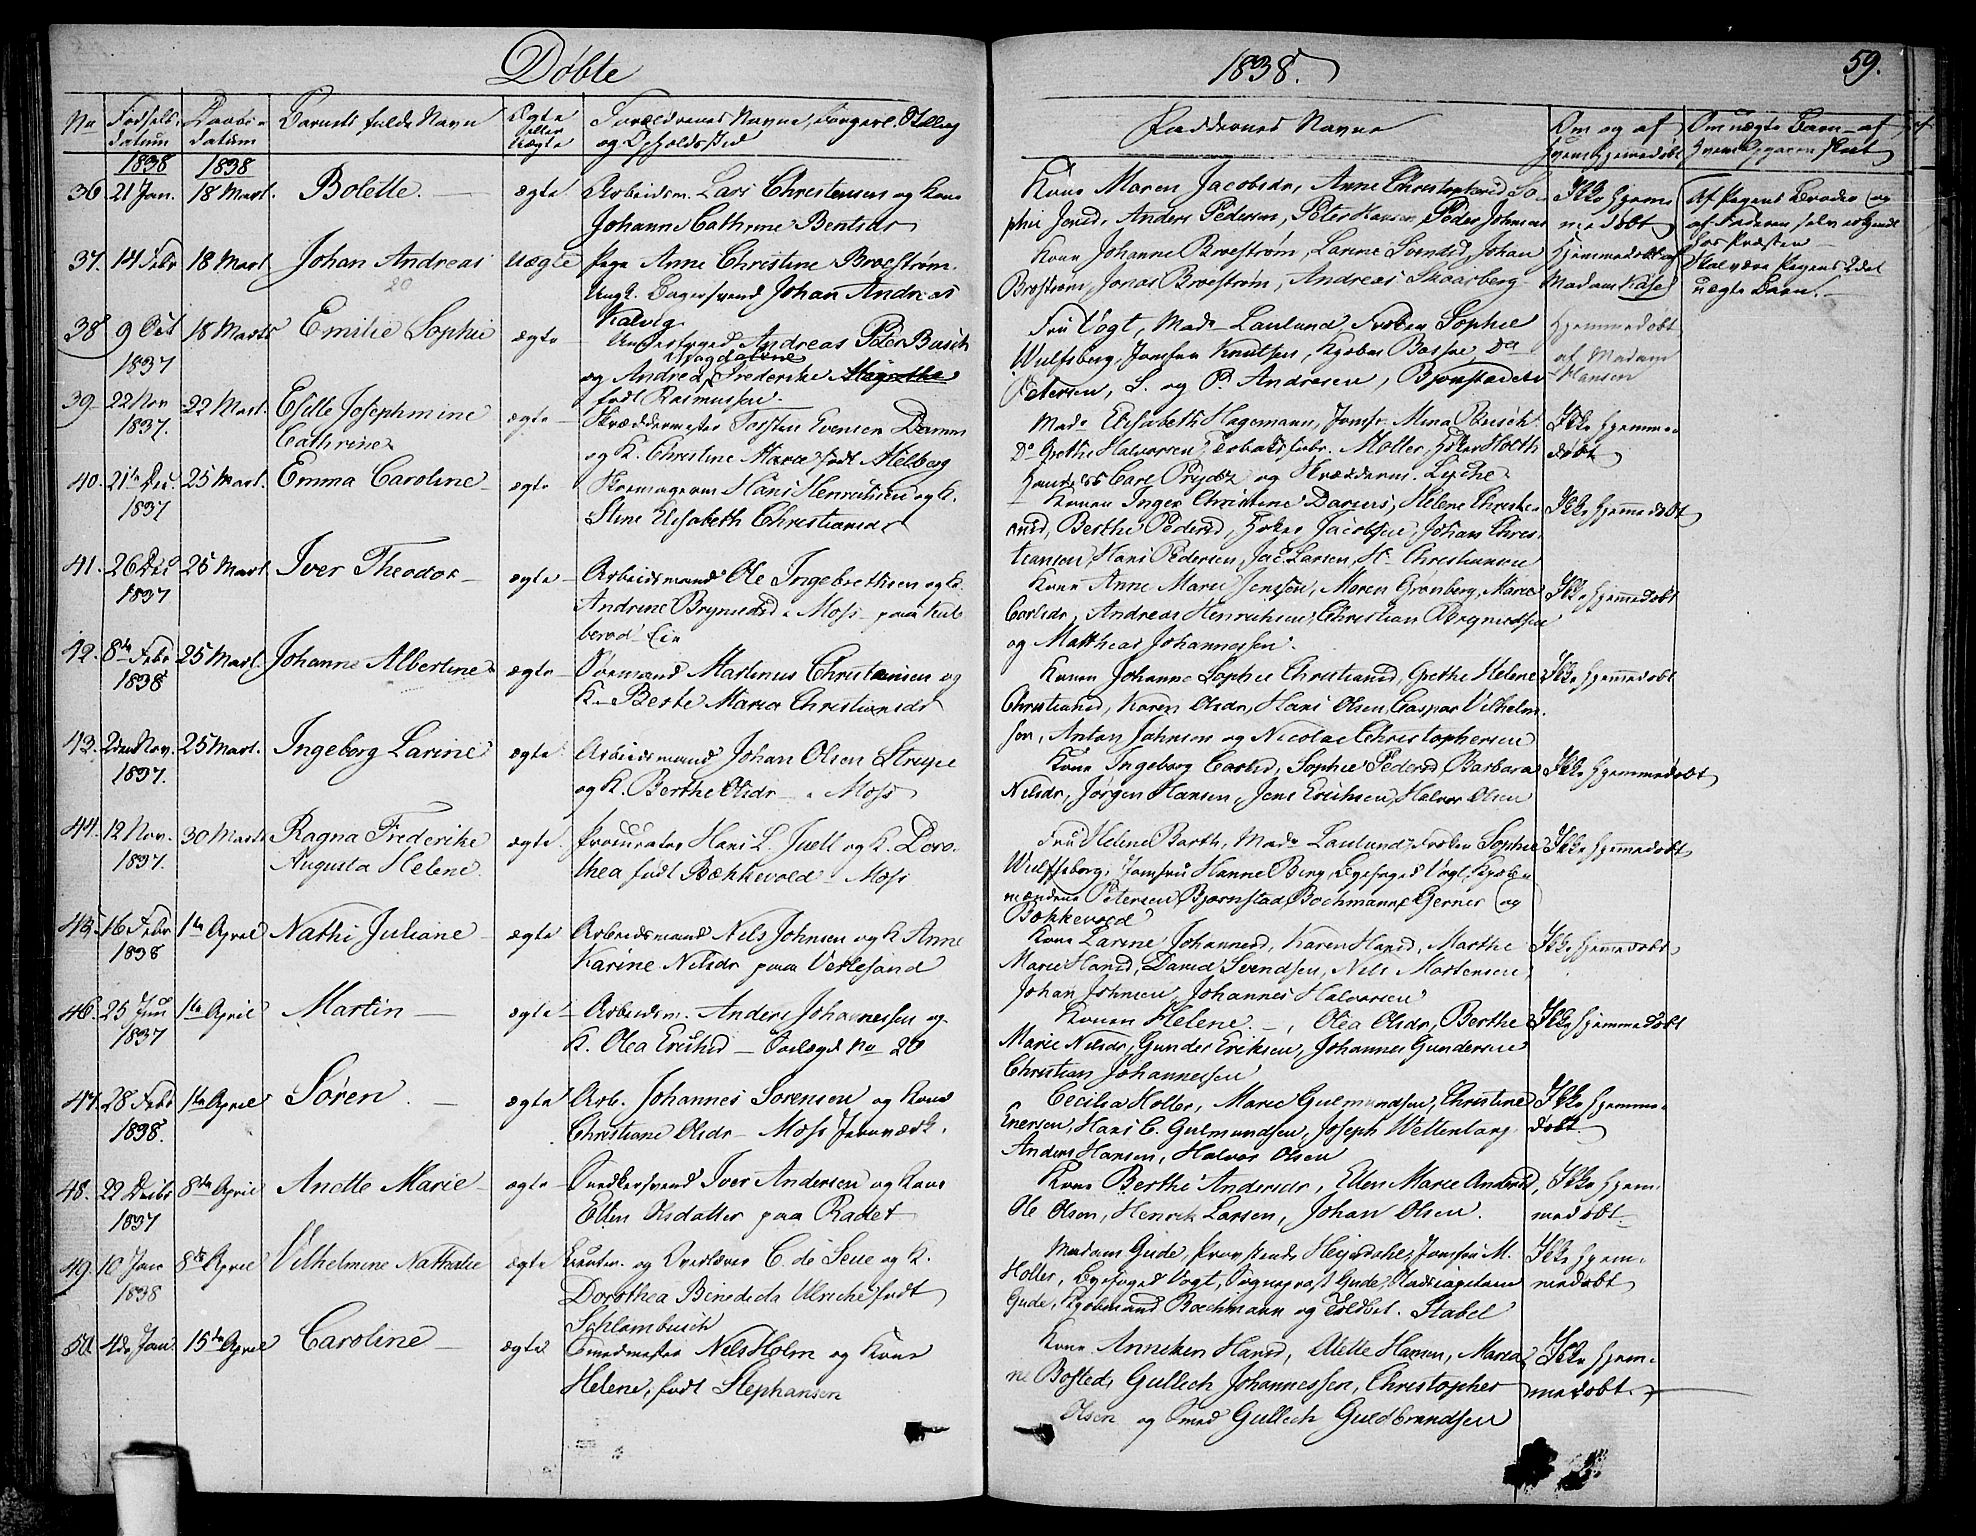 Døbte 1838. 59.
No Fødsels datum Daabs datum Barnets fulde Navn Ægte eller Uægte Forældrenes Navne, Borgerl. Stilling og Opholdsted Faddernes Navne Om og af hvem hjemmedøbt Om uægte Barn — af hvem
1838 1838
36 21 Jan. 18 Mart. Bolette. — ægte Arbeidsm. Lars Christensen og Kone
Johanne Cathrine Bentsdr
Kone Maren Jacobsdr, Anne Christophersd, So-
phie Jensd, Anders Pedersen, Peter Hansen, Peder Johnsen
Ikke hjem-
medøbt
37. 14 Febr 18 Mart. Johan Andreas uægte Pige Anne Christine Broestrøm.
20
Ungk. Bagersvend Johan Andreas
Kalvig
Kone Johanne Broestrøm, Larine Svendsd, Johan
Broestrøm, Jonas Broestrøm, Andreas Skaarsberg
Hjemmedøbt af
Madam Kåse
Af Pigens Broder og
af Faderen selv erkjendt
hos Præsten —
Skal være Pigens 2det
uægte Barn. —
38 9 Oct 18 Marts Emilie Sophie ægte Andreas Peter Busch
1837
Magdalene
og Andrea Frederike Magrethe
født Rasmussen.
Fru Vogt, Mad. Laulund, Frøken Sophie
Wulfsberg, Jomfru Knutsen, Kjøbm. Basse, Do
Petersen, S. og P. Andresen, Bjørnstad
Hjemmedøbt
af Madam
Hansen
39 22 Nov 22 Mart. Esille Josephmine ægte Skræddermester Torsten Evensen Damm
1837. Cathrine
og K. Christine Marie født Melberg
Mad. Elisabeth Hagemann, Jomfr. Mina Busch
Do Grethe Halvorsen, Tobaksfabr. Møller,
Carl Prydz og Skrædderm. Lyche
Ikke hjemme-
døbt
40. 21de Dec. 25 Mart. Emma Caroline ægte Skomagerm Hans Henriksen og K.
1837
Stine Elisabeth Christiansdr
Konen Inger Christine Darius, Helene Christi-
ansd, Berthe Pedersd, Jacobsen, Johan Chris-
tiansen, Hans Pedersen, Jac. Larsen, H. Christiansen
Ikke hjemmedøbt
41. 26 Dec 25 Mart. Iver Theodor — ægte Arbeidsmand Ole Ingebretsen og K.
1837
Andrine Brynildsd. Moss paa
Kone Anne Marie Jensen, Maren Grønberg, Marie
Carlsdr, Andreas Henriksen, Christian Brynildsen
og Matthias Johannessen.
Ikke hjemmedøbt
42. 8de Febr 25 Mart. Johanne Albertine ægte Sømand Martinus Christensen og
1838
K. Berte Maria Christiansdr
Konen Johanne Sophie Christiansd, Grethe Helene
Christiansd, Karen Olsdr, Hans Olsen, Caspar Vilhelm-
sen, Anton Jahnsen og Nicolai Christophersen
Ikke hjemmedøbt
43. 2den Nov. 25 Mart. Ingeborg Larine ægte Arbeidsmand Johan Olsen
1837.
og K. Berthe Olsdr — Moss
Kone Ingeborg Carlsd, Sophie Pedersd, Barbara
Nilsdr, Jørgen Hansen, Jens Eriksen, Halvor Olsen
Ikke hjemmedøbt
44. 12 Nov. 30 Marts Ragna Frederike ægte Procurator Hans L. Juell og K. Doro-
1837. Augusta Helene.
thea født Bækkevold — Moss
Fru Helene Barth, Mad. Laulund, Frøken Sophie
Wulffsberg, Jomfru Hanne Berg, Byefoged Vogt, Kjøb-
mændene Petersen, Bjørnstad, Bachmann, Gerner og
Bækkevold
Ikke hjemmedøbt
45. 16 Febr 1te April Nathi Juliane — ægte Arbeidsmand Nils Johnsen og K Anne
1838
Karine Nilsdr paa Verlesand
Kone Larine Johannesd, Karen Hansd, Marthe
Marie Hansd, David Svendsen, Nils Mortensen
Johan Johnsen, Johannes Halvorsen
Ikke hjemmedøbt
46. 25 1te April Martin — ægte Arbeidsm. Anders Johannessen og
1837
K. Olea Eriksd — No 20
Konen Helene —, Olea Olsdr, Berthe
Marie Nilsdr, Gunder Eriksen, Johannes Gundersen
Christian Johannessen
Ikke hjemmedøbt
47. 28 Febr 1te April Søren. — ægte Arb. Johannes Sørensen og Kone
1838.
Christiane Olsdr — Moss Jernværk.
Cecilia Holler, Marie Gulmundsen, Christine
Enersen, Hans C. Gulmundsen, Joseph Wettenlang
Anders Hansen, Halvor Olsen
Ikke hjemme-
døbt
48. 22 Decbr 8de April Anette Marie — ægte Snedkersvend Iver Andersen og Kone
1837
Ellen Olsdatter paa Rachet
Kone Berthe Andersdr, Ellen Marie Andersd,
Ole Olsen, Henrik Larsen, Johan Olsen.
Ikke hjem-
medøbt
49. 10 Jan 8de April Vilhelmine Nathalie ægte Lieuten. og Overlærer C. de Seue og K.
1838
Dorothea Benedicta Ulriche født
Schlambusch
Madam Gude, Provstinde Heyerdahl, Jomfru M.
Holler, Byefoged Vogt, Sognepræst Gude, Stadscapitain
Gude, Kjøbmand Bachmann og Toldbet. Stabel
Ikke hjem-
medøbt
50 4de Jan. 15de April Caroline — ægte Smedmester Nils Holm og Kone
Helene, født Stephansen
Kone Anneken Hansd, Olette Hansen, Maria-
ne Bosted, Gullech Johannessen, Christopher
Olsen og Smed Gullech Guldbrandsen
Ikke hjem-
medøbt.